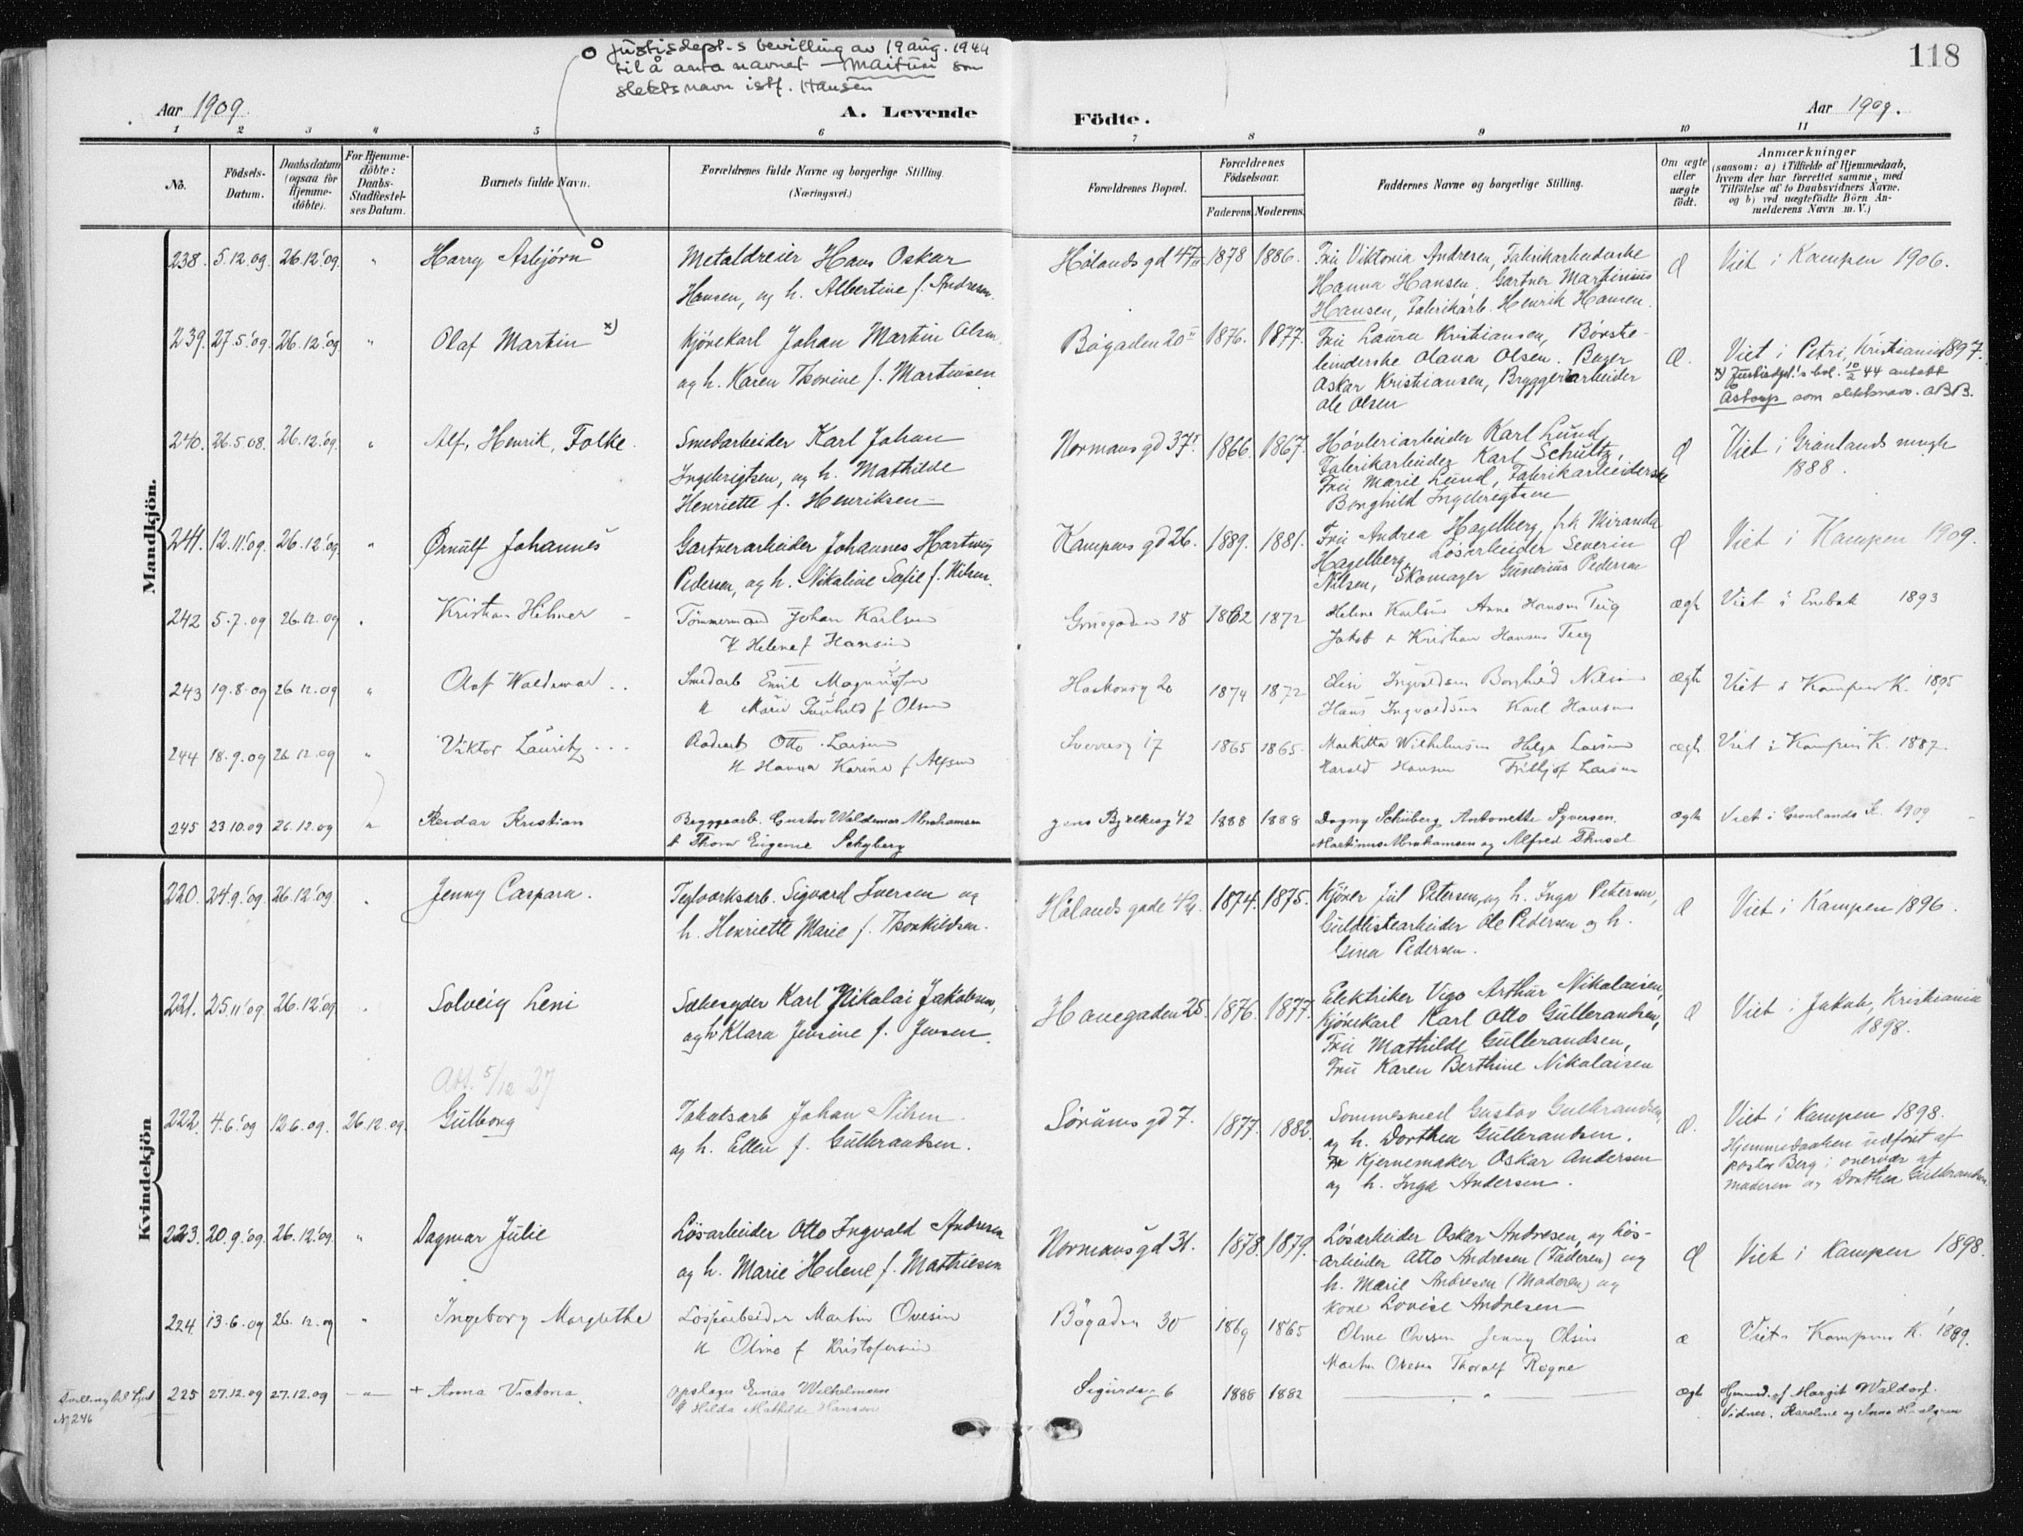 118
Justisdept.s bevilling av 19 aug. 1944
til å anta navnet som
slektsnavn istf. Hansen
Aar 1909.
A. Levende
Födte.
Aar 1909.
1 2 3 4 5 6 7 8 9 10 11
No.
Födsels-Datum.
Daabsdatum (ogsaa for Hjemme-döbte).
For Hjemme-döbte: Daabs-Stadfæstel-ses Datum.
Barnets fulde Navn.
Forældrenes fulde Navne og borgerlige Stilling. (Næringsvei.)
Forældrenes Bopæl.
Forældrenes Födselsaar.
Faderens. Moderens.
Faddernes Navne og borgerlige Stilling.
Om ægte eller uægte födt.
Anmærkninger
(saasom: a) i Tilfælde af Hjemmedaab, hvem der har forrettet samme, med Tilföielse af to Daabsvidners Navne, og b) ved uægtefödte Börn An-melderens Navn m. V.)
Mandkjön.
238. 5.12.09. 26.12.'09. " Harry Asbjörn Metaldreier Hans Oskar Hølands gd 47 1878 1886. Fru Viktoria Andresen, Fabrikarbeiderske Æ Viet i Kampen 1906.
Hansen, og h. Albertine f. Andresen. Hanna Hansen. Gartner Martinius
Hansen, Fabrikarb. Henrik Hansen.
239. 27.5.'09. 26.12.'09. " Olaf Martin x) Kjørekarl Johan Martin Olsen Bøgaden 20 II 1876. 1877. Fru Laura Kristiansen, Børste- Æ. Viet i Petri, Kristiania 1897.
og h. Karen Thorine f. Martinsen binderske Olana Olsen. Bager
Oskar Kristiansen, Bryggeriarbeider
Ole Olsen
x) Justisdept.'s bev. 10/2 44 antatt
Astorp som slektsnavn. OBB.
240. 26.5.08. 26.12.'09. " Alf, Henrik, Folke. Smedarbeider Karl Johan Normans gd 37 I 1866. 1867. Høvleriarbeider Karl Lund Æ Viet i Grønlands mngh
Ingebrigtsen, og h. Mathilde Fabrikarbeider Karl Schultz, 1888.
Henriette f. Henriksen Fru Marie Lund, Fabrikarbeiderske
Borghild Ingebrigtsen
241. 12.11.'09. 26.12.'09. " Ørnulf Johannes Gartnerarbeider Johannes Hartvig Kampens gd 26. 1889. 1881. Fru Andrea Hagelberg, frk Miranda Æ Viet i Kampen 1909.
Pedersen, og h. Nikaline Sofie f. Nilsen. Hagelberg, Løsarbeider Severin
Nilsen, Skomager Gunerius Pedersen
242 5.7.09 26.12.09 " Kristian Hilmer Tømmermand Johan Karlsen Gruegaden 18 1862 1872 Helene Karlsen Anne Hansen Teig ægte Viet i Enebak 1893
H Helene f Hansen Jakob & Kristian Hansen Teig
243 19.8.09 26.12.09 " Olaf Waldemar Smedarb Emil Magnussen Haakonsg 20 1874 1872 Elise Ingvaldsen Borghild Nilsen ægte Viet i Kampen K. 1895
H Marie Gunhild f Olsen Hans Ingvaldsen Karl Hansen
244 18.9.09 26.12.09 " Viktor Lauritz Otto Larsen Sverresg 17 1865 1865. Wilhelmsen Helga Larsen ægte Viet i Kampen K. 1887
H Hanna Karine f Alfsen Harald Hansen Frithjof Larsen
245 23.10.09 26.12.09 " Reidar Kristian Bryggearb. Gustav Waldemar Abrahamsen Jens Bjelkesg 42 1888 1888 Dagny Schiberg Antonette Syversen. ægte Viet i Grønlands K. 1909
H Thora Eugenie Schyberg Martinus Abrahamsen og Alfred
Kvindekjön
220. 24.9.'09 26.12.'09 " Jenny Caspara. Teglværksarb. Sigvard Iversen og Hølands gade 42 1874. 1875. Kjører Jul Petersen, og h. Inga Petersen, Æ Viet i Kampen 1896.
h. Henriette Marie f. Thorkildsen. Guldlistearbeider Ole Pedersen og h.
Gina Pedersen.
221. 25.11.'09 26.12.'09 " Solveig Leni Sæbesyder Karl Nikolai Jakobsen, Havegaden 25. 1876. 1877. Elektriker Vigo Arthur Nikolaisen, Æ Viet i Jakob, Kristiania
og h Klara Jensine f. Jensen. Kjørekarl Karl Otto Gulbrandsen, 1898.
Fru Mathilde Gulbrandsen,
Fru Karen Berthine Nikolaisen
Att. 5/12 27
222. 4.6.'09 12.6.09. 26.12.09. Gulborg Tobaksarb Johan Nilsen Sørums gd 7. 1877. 1882. Sommesmed Gustav Gulbrandsen, Æ. Viet i Kampen 1898.
og h. Ellen f. Gulbrandsen. og h. Dorthea Gulbrandsen. Hjemmedaaben udført af
Kjernemaker Oskar Andersen pastor Berg i overvær af
og h. Inga Andersen. moderen og Dorthea Gulbrandsen.
223. 20.9.'09. 26.12.'09. " Dagmar Julie Løsarbeider Otto Ingvald Andresen Normans gd 31. 1878. 1879. Løsarbeider Oskar Andresen, og Løs- Æ Viet i Kampen 1898.
og h. Marie Helene f. Mathiesen arbeider Otto Andresen (Faderen) og
h. Marie Andresen (Moderen) og
kone Lovise Andresen
224 13.6.09 26.12.09 " Ingeborg Margrethe Løsarbeider Martin Ovesen Bøgaden 30 1869 1865 Oline Ovesen Jenny Olsen æ Viet i Kampens K. 1889.
H Oline f Kristofersen Martin Ovesen Thoralf Rogne
Tvilling til
No 246
225 27.12.09 27.12.09 — " — + Anna Victoria Opslager Einar Wilhelmsen Sigurdsg 6 1888 1882 " ægte Hjemmed. af Margit Waldorf.
H Hilda Mathilde Hansen Vidner. Karoline og Anna